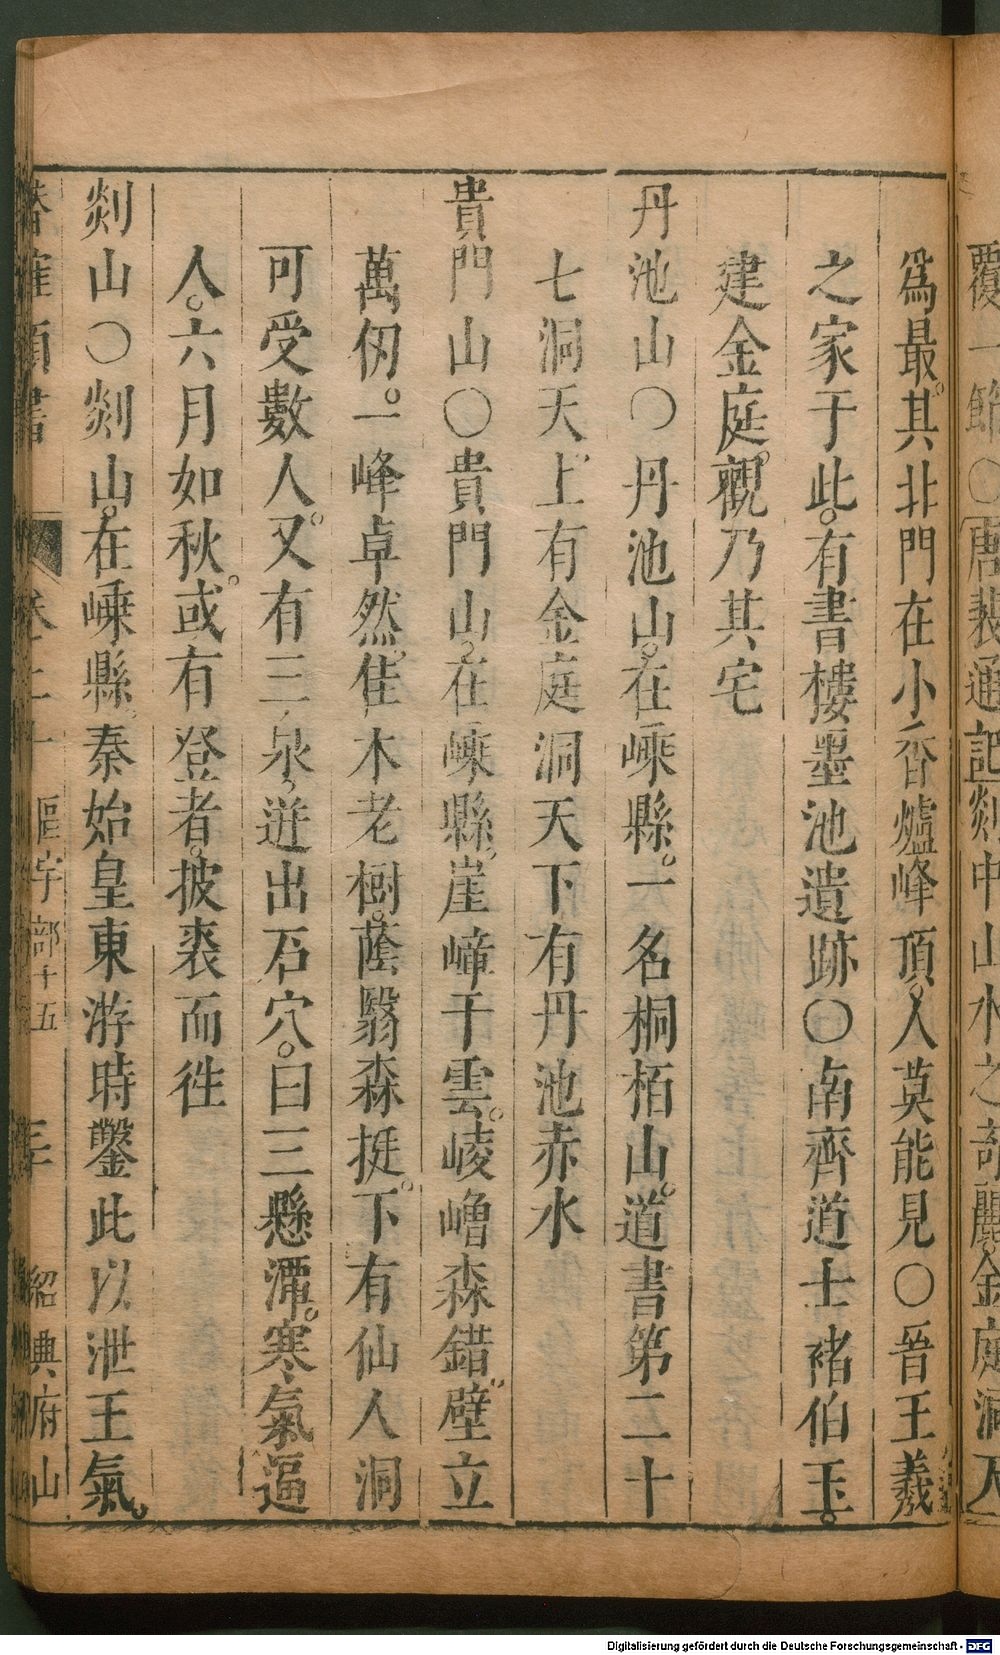 覆一節〇唐裴通記剡中山水之奇麗金庭洞天
爲最。其北門在小香爐峰頂。人莫能見〇晉王羲
之家于此。有書樓墨池遺跡〇南齊道士褚伯玉。
建金庭。觀乃其宅
丹池山〇丹池山。在嵊縣。一名桐栢山。道書第二十
七洞天。上有金庭洞天下有丹池赤水
貴門山〇貴門山。在嵊縣。崖嶂干雲。崚嶒森錯。壁立
萬仞。一峰卓然。佳木老樹。蔭翳森挺。下有仙人洞
可受數人。又有三泉。迸出石穴。曰三懸潭。寒氣逼
人。六月如秋。或有登者。披裘而徃
剡山〇剡山。在嵊縣。秦始皇東游時鑿此以泄王氣。
類書 卷 區宇部十五 三 紹興府山
Digitalisierung gefördert durch die Deutsche Forschungsgemeinschaft - DFG